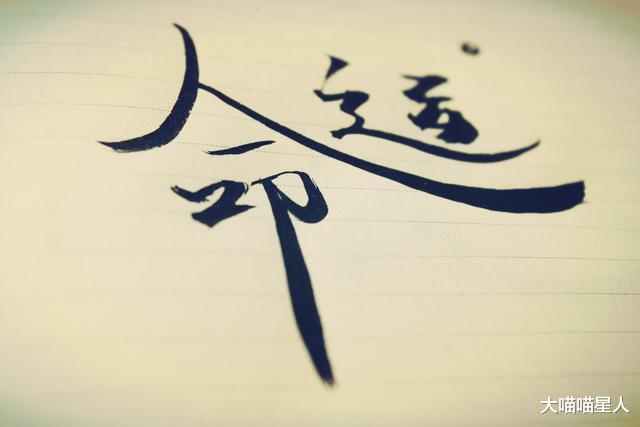 命运
大喵喵星人